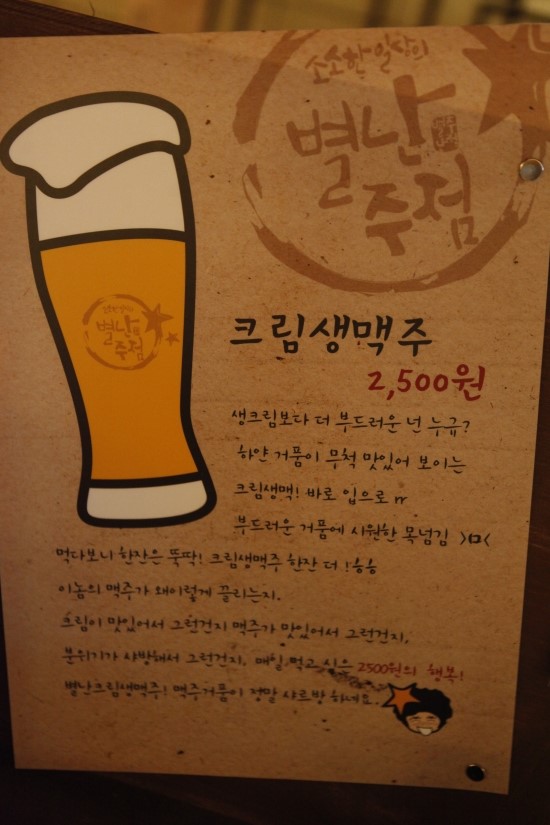 소소한 일상의
별난
주점
별난
주점
크림생맥주
2,500원
생크림보다 더 부드러운 넌 누규?
하얀 거품이 무척 맛있어 보이는
크림생맥! 바로 입으로 rr
부드러운 거품에 시원한 목넘김 >ㅁ<
먹다보니 한잔은 뚝딱! 크림생맥주 한잔 더 !흠흠
이놈의 맥주가 왜이렇게 끌리는지.
크림이 맛있어서 그런건지 맥주가 맛있어서 그런건지,
분위기가 샤방해서 그런건지, 매일 먹고 싶은 2500원의 행복!
별난크림생맥주! 맥주거품이 정말 샤르방 하네요.